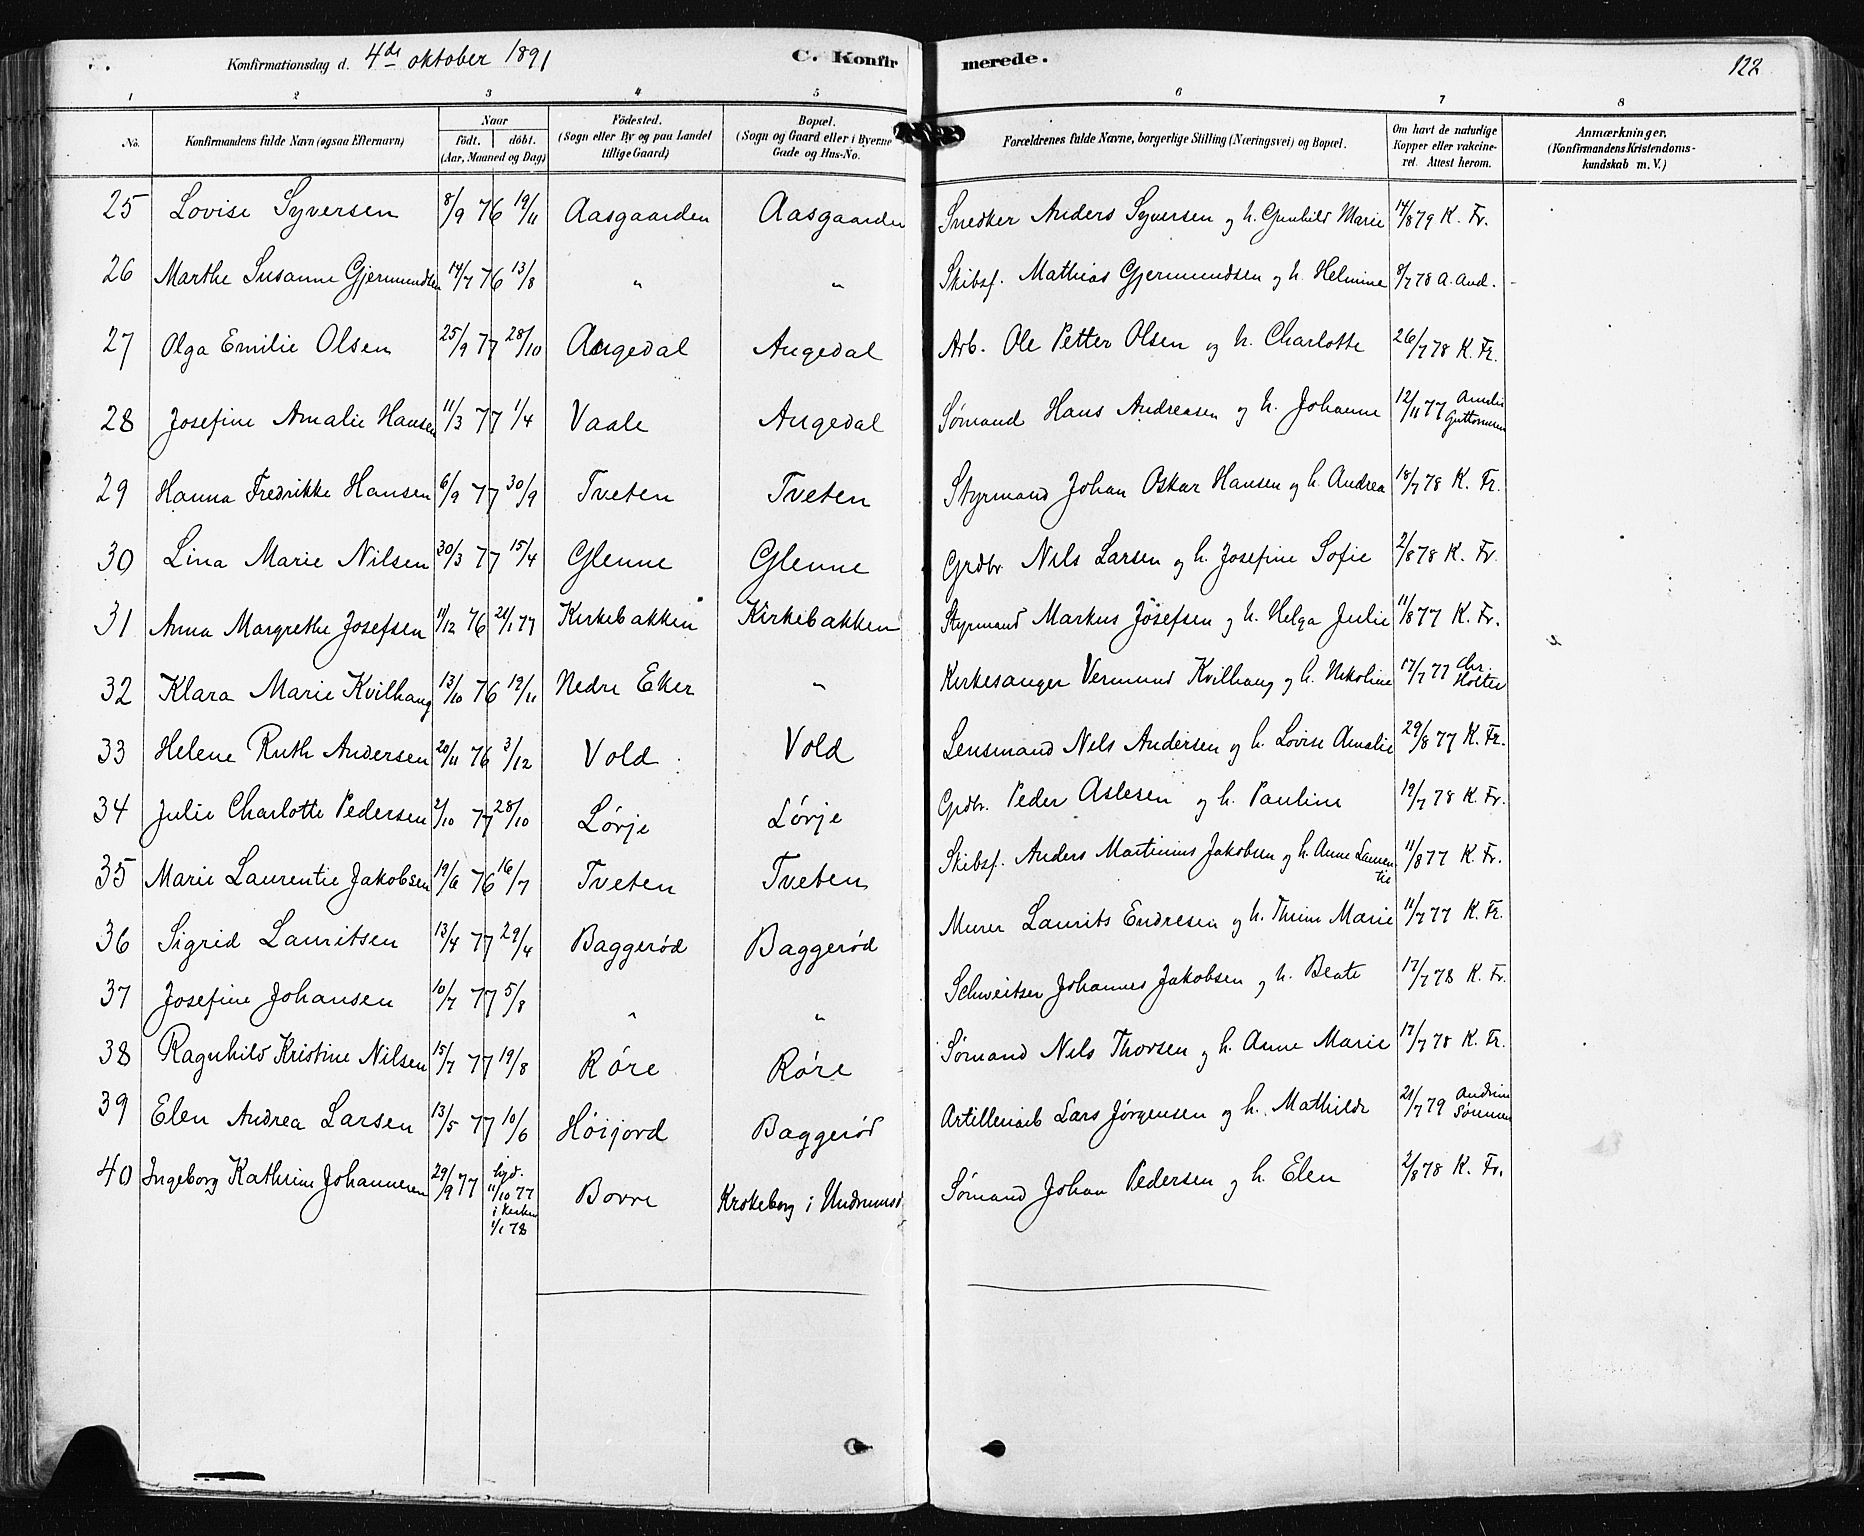 Konfirmationsdag d. 4de oktober 1891 C. Konfirmerede. 122
1 2 3 4 5 6 7 8
No. Konfirmandens fulde Navn (ogsaa Efternavn) Naar født. døbt. (Aar, Maaned og Dag) Fødested. (Sogn eller By og paa Landet tillige Gaard) Bopæl. (Sogn og Gaard eller i Byerne Gade og Hus-No. Forældrenes fulde Navne, borgerlige Stilling (Næringsvei) og Bopæl. Om havt de naturlige Kopper eller vakcineret. Attest herom. Anmærkninger. (Konfirmandens Kristendomskundskab m. V.)
25 Lovise Syversen 8/9 76 19/11 Aasgaarden Aasgaarden Snedker Anders Syversen og h. Gunhild Marie 14/8 79 K. Fr.
26 Marthe Susanne Gjermundsen 14/7 76 13/8 " " Skibsf. Mathias Gjermundsen og h. Helmine 8/7 78 A. And.
27 Olga Emilie Olsen 25/9 77 28/10 Augedal Augedal Arb. Ole Petter Olsen og h. Charlotte 26/7 78 K. Fr.
28 Josefine Amalie Hansen 11/3 77 1/4 Vaale Augedal Sømand Hans Andreasen og h. Johanne 12/11 77 Amalie Guttormsen
29 Hanna Fredrikke Hansen 6/9 77 30/9 Tveten Tveten Styrmand Johan Oskar Hansen og h. Andrea 18/7 78 K. Fr.
30 Lina Marie Nilsen 30/3 77 15/4 Glenne Glenne Grdbr. Nils Larsen og h. Josefine Sofie 2/8 78 K. Fr.
31 Anna Margrethe Josefsen 11/12 76 21/1 77 Kirkebakken Kirkebakken Styrmand Markus Josefsen og h. Helga Julie 11/8 77 K. Fr.
32 Klara Marie Kvilhaug 13/10 76 19/11 Nedre Eker " Kirkesanger Vermund Kvilhaug og h. Nikoline 17/7 77 Chr. Holter
33 Helene Ruth Andersen 20/11 76 3/12 Vold Vold Lensmand Nels Andersen og h. Lovise Amalie 29/8 77 K. Fr.
34 Julie Charlotte Pedersen 2/10 77 28/10 Lørje Lørje Grdbr. Peder Aslesen og h. Pauline 19/7 78 K. Fr.
35 Marie Laurentie Jakobsen 19/6 76 16/7 Tveten Tveten Skibsf. Anders Martinius Jakobsen og h. Anne Laurentie 11/8 77 K. Fr.
36 Sigrid Lauritsen 13/4 77 29/4 Baggerød Baggerød Murer Laurits Endresen og h. Thrine Marie 11/7 77 K. Fr.
37 Josefine Johansen 10/7 77 5/8 " " Schweitser Johannes Jakobsen og h. Beate 17/7 78 K. Fr.
38 Ragnhild Kristine Nilsen 15/7 77 19/8 Røre Røre Sømand Nils Thorsen og h. Anne Marie 17/7 78 K. Fr.
39 Elen Andrea Larsen 13/5 77 10/6 Høijord Baggerød Artillerieb Lars Jørgensen og h. Mathilde 21/7 79 Andrine Sørensen
40 Ingeborg Kathrine Johannesen 29/9 77 hjd. 11/10 77 i Kirken 1/1 78 Borre Krokeborg i Undrumsd. Sømand Johan Pedersen og h. Elen 2/8 78 K. Fr.